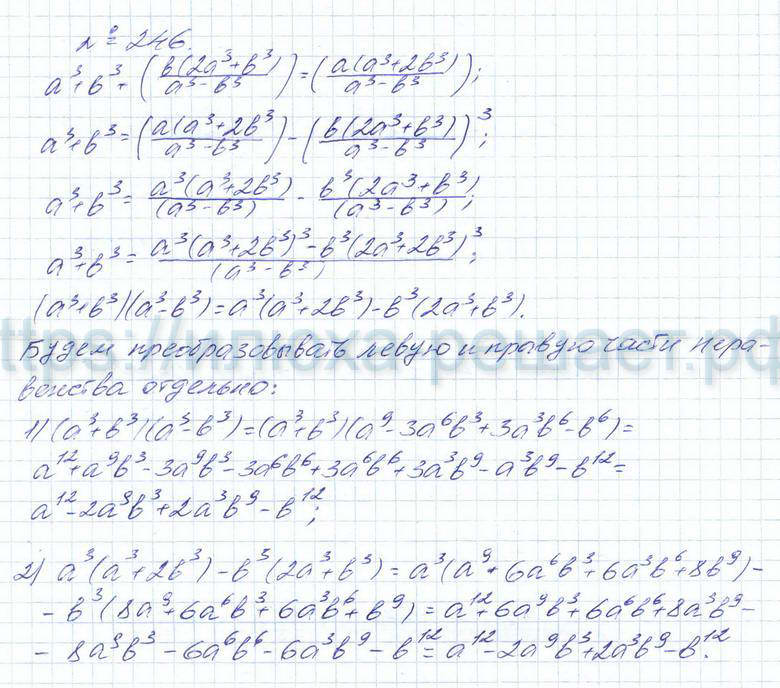 № 246.
a³+b³+(b(2a³+b³)/(a³-b³))=(a(a³+2b³)/(a³-b³));
a³+b³=(a(a³+2b³)/(a³-b³))-(b(2a³+b³)/(a³-b³))³;
a³+b³=a³(a³+2b³)/(a³-b³)-b³(2a³+b³)/(a³-b³);
a³+b³=(a³(a³+2b³)³-b³(2a³+2b³)³)/(a³-b³);
(a³+b³)(a³-b³)=a³(a³+2b³)-b³(2a³+b³).
https://илюха-решает.рф
Будем преобразовывать левую и правую части нера-
венства отдельно:
1) (a³+b³)(a³-b³)=(a³+b³)(a⁹-3a⁶b³+3a³b⁶-b⁶)=
a¹²+a⁹b³-3a⁹b³-3a⁶b⁶+3a⁶b⁶+3a³b⁹-a³b⁹-b¹²=
a¹²-2a⁹b³+2a³b⁹-b¹²;
2) a³(a³+2b³)-b³(2a³+b³)=a³(a⁹+6a⁶b³+6a³b⁶+8b⁹)-
-b³(8a⁹+6a⁶b³+6a³b⁶+b⁹)=a¹²+6a⁹b³+6a⁶b⁶+8a³b⁹-
-8a⁹b³-6a⁶b⁶-6a³b⁹-b¹²=a¹²-2a⁹b³+2a³b⁹-b¹².